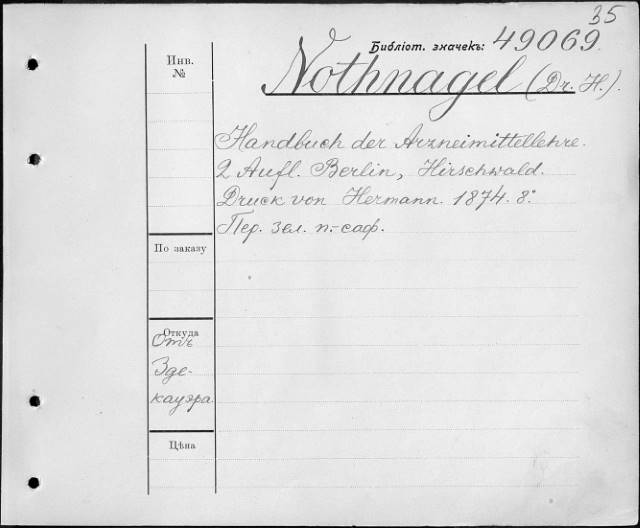 35
Библіот. значекъ: 49069
Nothnagel (Dr. H.).
Инв.
№
Handbuch der Arzneimittellehre.
2 Aufl. Berlin, Hirschwald.
Druck von Hermann. 1874. 8°.
Пер. зел. п.-саф.
По заказу
Откуда
Отъ
Зде-
кауэра
Цѣна